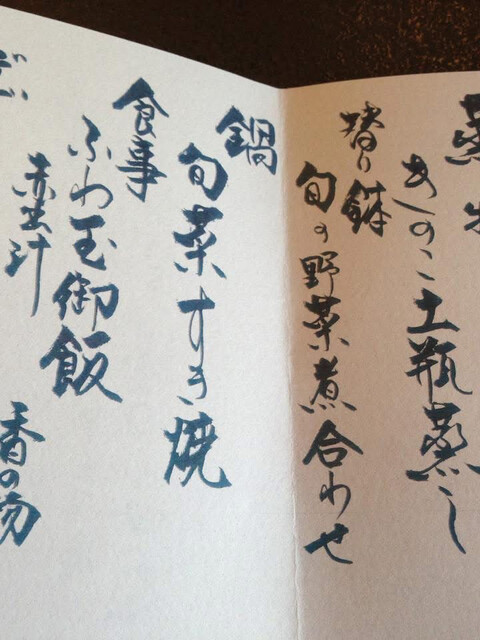 蒸物
きのこ土瓶蒸し
替り鉢
旬の野菜煮合わせ
鍋
旬菜すき焼
食事
ふわ玉御飯
赤出汁
香の物